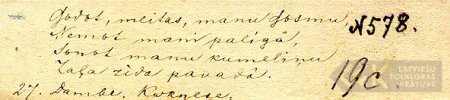 Godot, meitas, manu josmu, N578.
Ņemot mani palīgā,
Jemot manu kumeliņu
Zaļa zīda pavadā. 19c
27. Dambe, Koknese.
LATVIEŠU
FOLKLORAS
KRĀTUVE